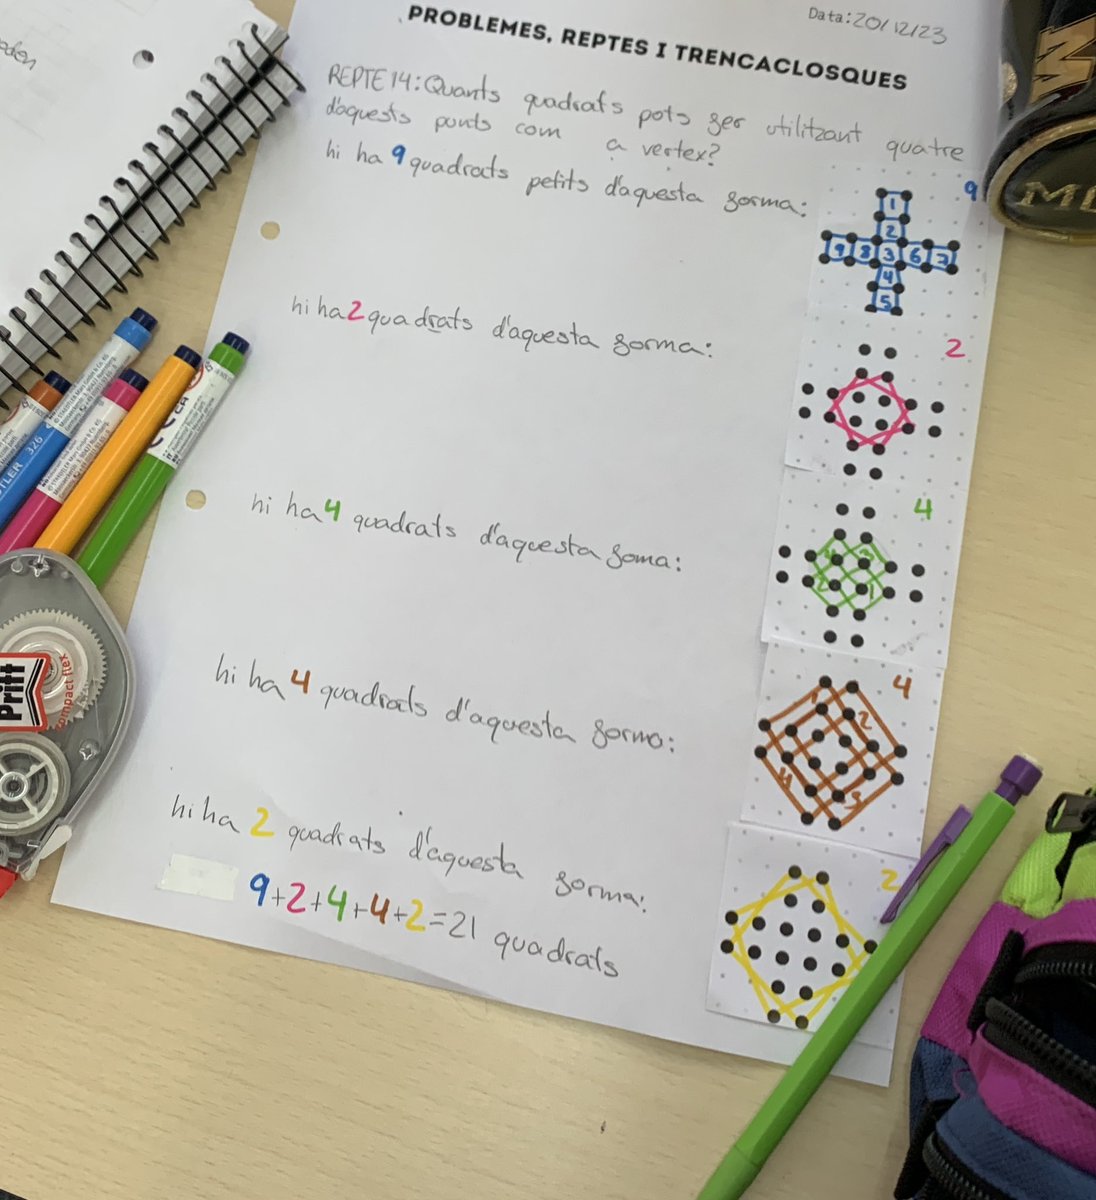 Data: 20/12/23
PROBLEMES, REPTES I TRENCACLOSQUES
REPTE 14: Quants quadrats pots fer utilitzant quatre
d'aquests punts com a vertex?
hi ha 9 quadrats petits d'aquesta forma:
9
1
2
9 8 3 6 7
4
5
hi ha 2 quadrats d'aquesta forma:
2
hi ha 4 quadrats d'aquesta foma:
4
3
2
1
hi ha 4 quadrats d'aquesta forma:
4
1
2
4
3
hi ha 2 quadrats d'aquesta forma:
2
9+2+4+4+2=21 quadrats
326
Pritt
compact flex